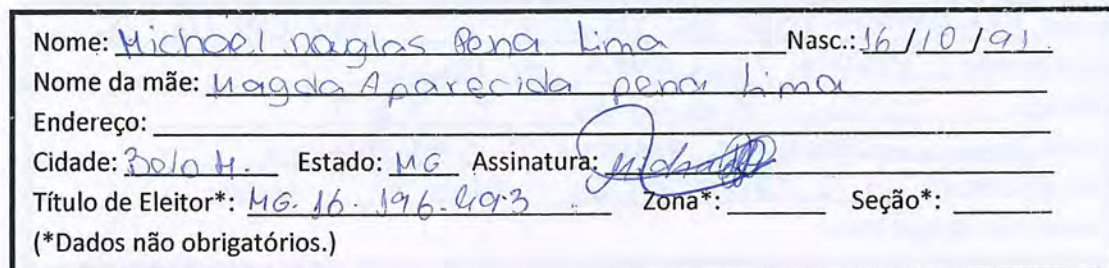 Nome: Michael naglas Pena Lima Nasc.: 16/10/91
Nome da mãe: Magda Aparecida pena Lima
Endereço:
Cidade: Belo H. Estado: MG Assinatura:
Título de Eleitor*: MG. 16. 196.493 Zona*: Seção*:
(*Dados não obrigatórios.)